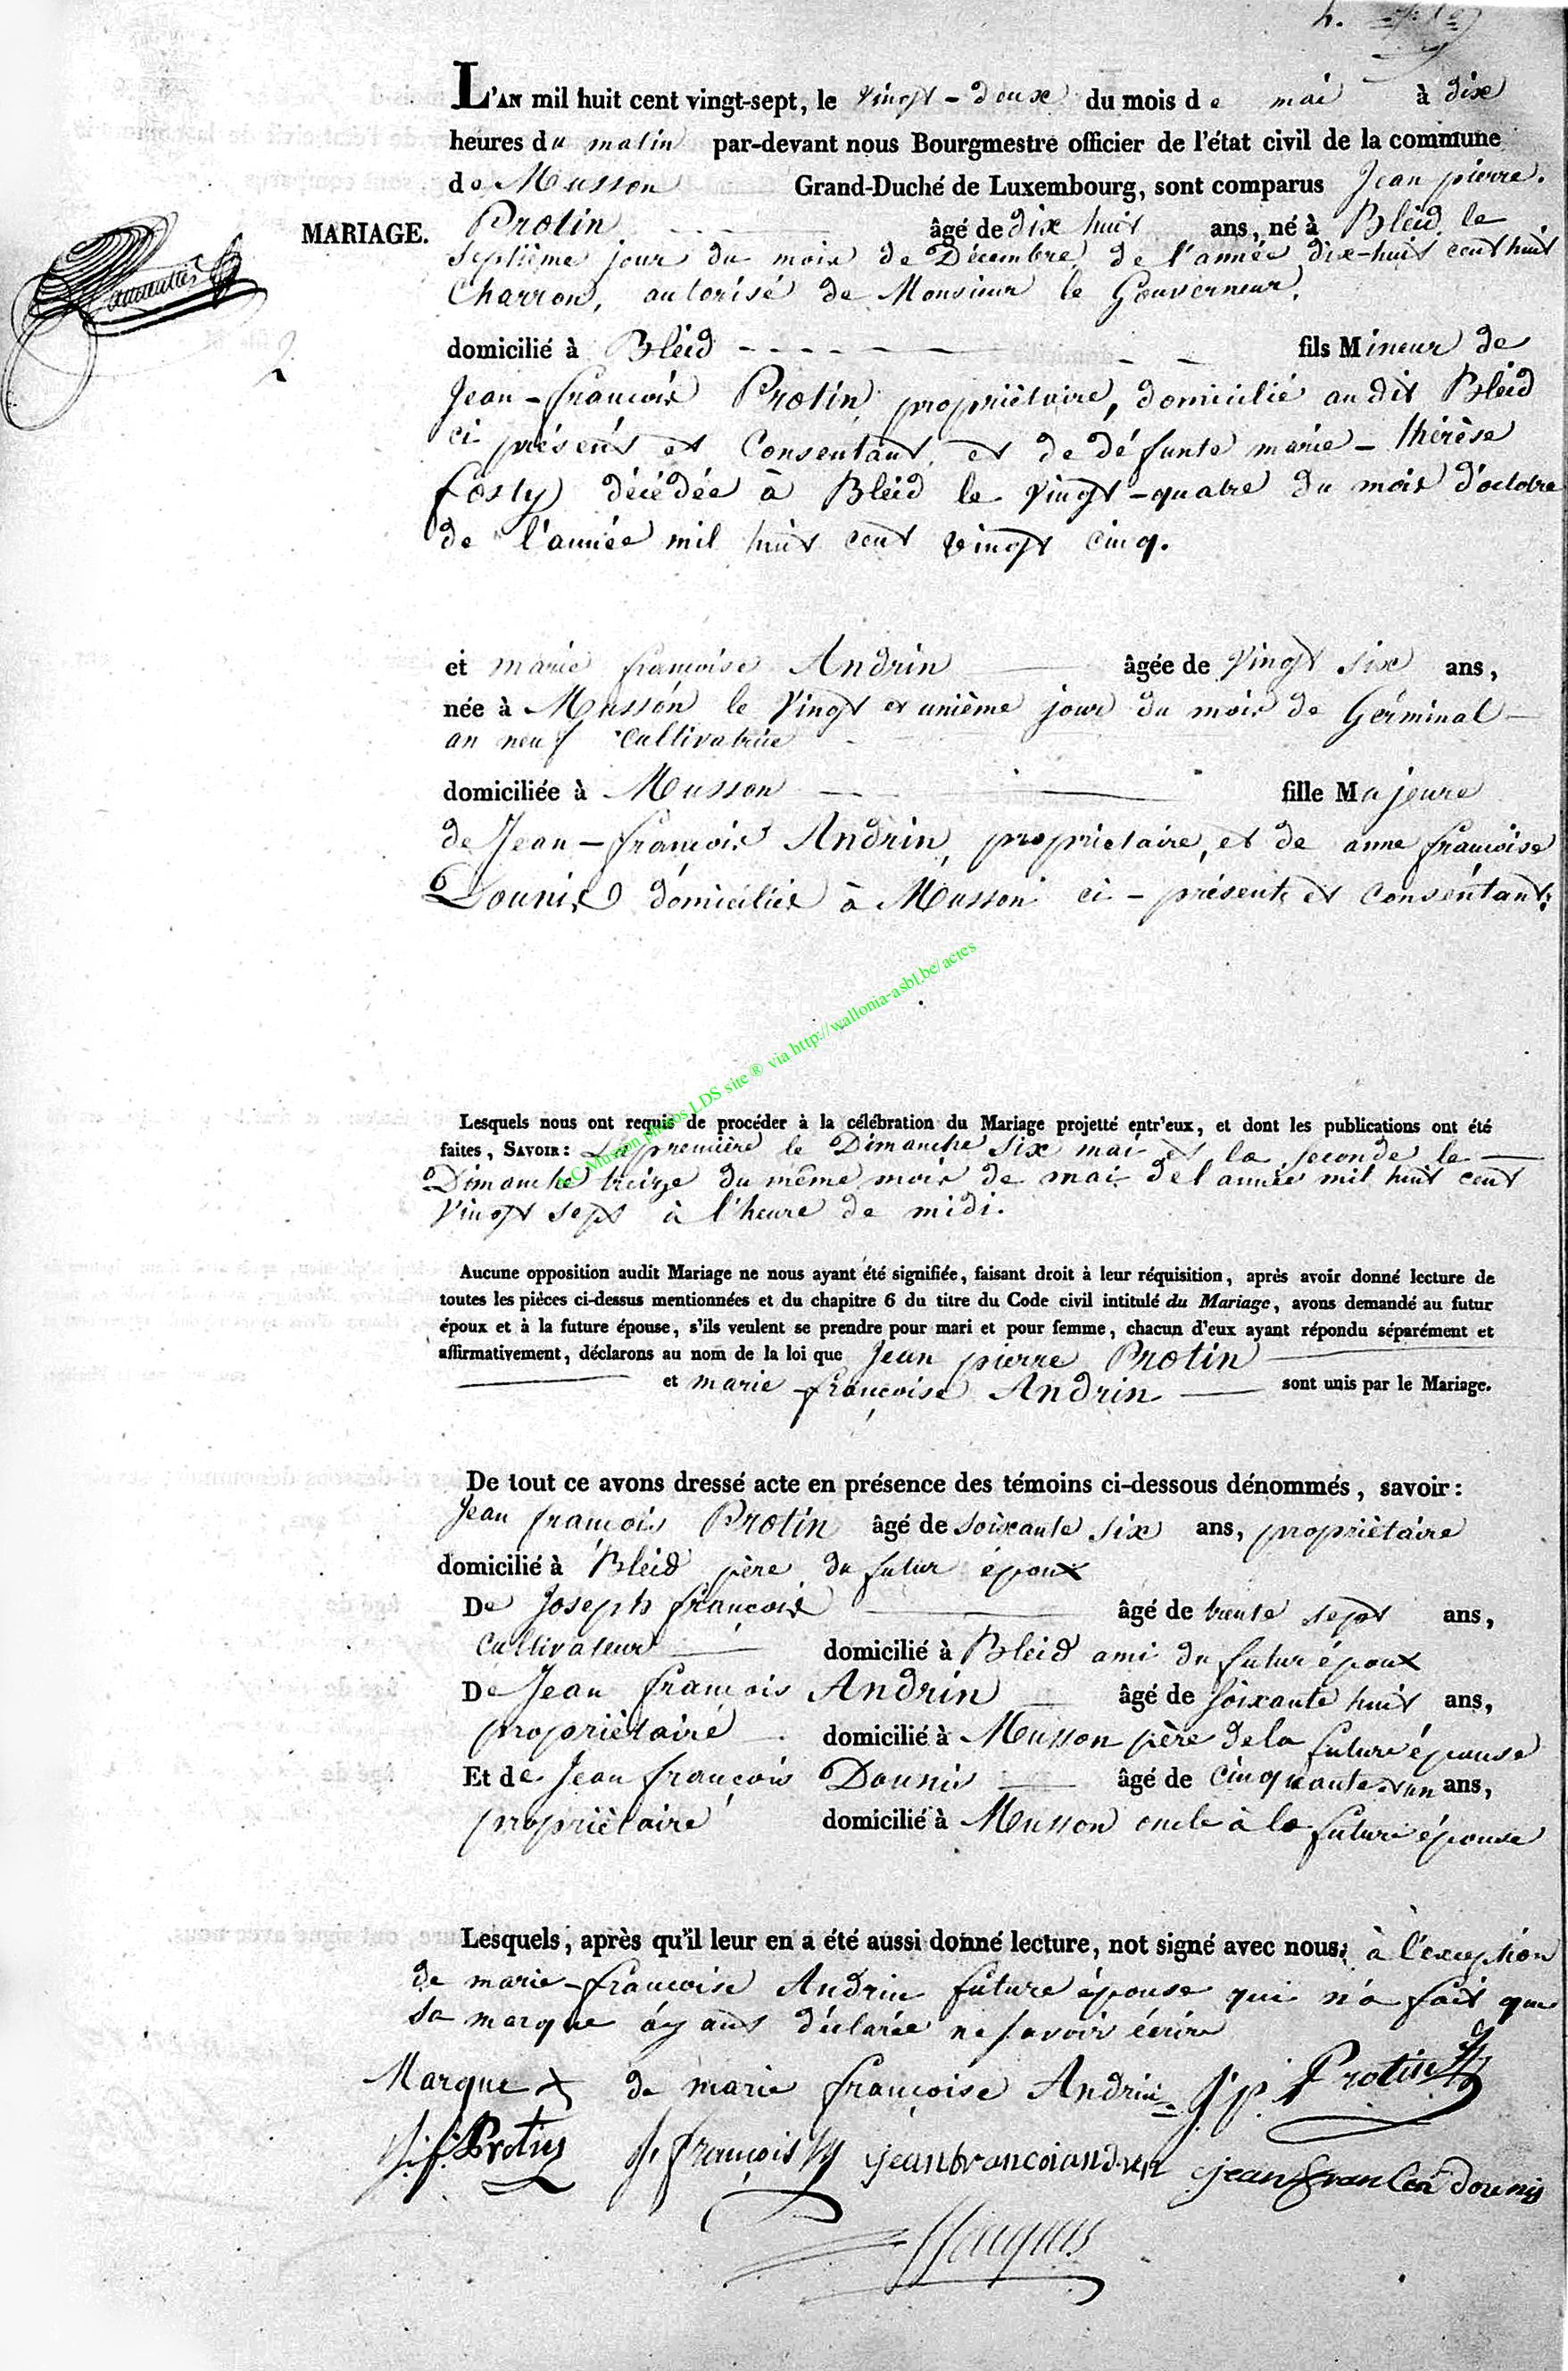 4.
L'AN mil huit cent vingt-sept, le vingt-deux du mois de mai à dix
heures du matin par-devant nous Bourgmestre officier de l'état civil de la commune
de Musson Grand-Duché de Luxembourg, sont comparus Jean pierre
MARIAGE.
Protin âgé de dix huit ans, né à Bleid le
septième jour du mois de Décembre de l'année dix-huit cent huit
Charron, autorisé de Monsieur le Gouverneur,
2
domicilié à Bleid fils Mineur de
Jean-françois Protin propriétaire, domicilié audit Bleid
ci présent et Consentant, et de défunte marie-thérèse
fosty décédée à Bleid le vingt-quatre du mois d'octobre
de l'année mil huit cent vingt cinq.
et marie françoise Andrin âgée de vingt six ans,
née à Musson le vingt et unième jour du mois de Germinal
an neuf cultivatrice
domiciliée à Musson fille Majeure
de Jean-françois Andrin, propriétaire, et de anne françoise
Dounis domiciliés à Musson ci-présents et consentants
A.C. Musson photos LDS site ® via http://wallonia-asbl.be/actes
Lesquels nous ont requis de procéder à la célébration du Mariage projetté entr'eux, et dont les publications ont été
faites, SAVOIR: La première le Dimanche six mai et la seconde le
Dimanche treize du même mois de mai de l'année mil huit cent
vingt sept à l'heure de midi.
Aucune opposition audit Mariage ne nous ayant été signifiée, faisant droit à leur réquisition, après avoir donné lecture de
toutes les pièces ci-dessus mentionnées et du chapitre 6 du titre du Code civil intitulé du Mariage, avons demandé au futur
époux et à la future épouse, s'ils veulent se prendre pour mari et pour femme, chacun d'eux ayant répondu séparément et
affirmativement, déclarons au nom de la loi que Jean pierre Protin
et marie françoise Andrin sont unis par le Mariage.
De tout ce avons dressé acte en présence des témoins ci-dessous dénommés, savoir:
Jean françois Protin âgé de soixante six ans, propriétaire
domicilié à Bleid père du futur époux
De Joseph françois âgé de trente sept ans,
Cultivateur domicilié à Bleid ami du futur époux
De Jean françois Andrin âgé de soixante huit ans,
propriétaire domicilié à Musson père de la future épouse
Et de Jean françois Dounis âgé de cinquante et un ans,
propriétaire domicilié à Musson oncle à la future épouse
Lesquels, après qu'il leur en a été aussi donné lecture, not signé avec nous; à l'exception
de marie-françoise Andrin future épouse qui n'a fait que
sa marque ayant déclarée ne savoir écrire
Marque + de marie françoise Andrin J. p. Protin
J. f. Protin J. françois jean francoi andrin jean francoi dounis